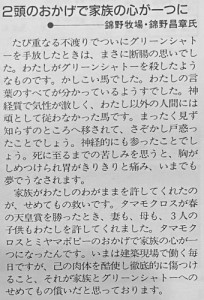 2頭のおかげで家族の心が一つに
錦野牧場・錦野昌章氏
たび重なる不渡りでついにグリーンシャ
トーを手放したときは、まさに断腸の思いでし
た。わたしがグリーンシャトーを殺したよう
なものです。かしこい馬でした。わたしの言
葉のすべてが分かっているようすでした。神
経質で気性が激しく、わたし以外の人間には
頑として従わなかった馬です。まったく見ず
知らずのところへ移されて、さぞかし戸惑っ
たことでしょう。神経的にも参ったことでし
ょう。死に至るまでの苦しみを思うと、胸が
しめつけられ胃がきりきりと痛み、いまでも
夢でうなされます。
家族がわたしのわがままを許してくれたの
が、せめてもの救いです。タマモクロスが春
の天皇賞を勝ったとき、妻も、母も、3人の
子供もわたしを許してくれました。タマモク
ロスとミヤマポピーのおかげで家族の心が一
つになったんです。いまは建築現場で働く毎
日ですが、己の肉体を酷使し徹底的に傷つけ
ること、それが家族とグリーンシャトーへの
せめてもの償いだと思っております。